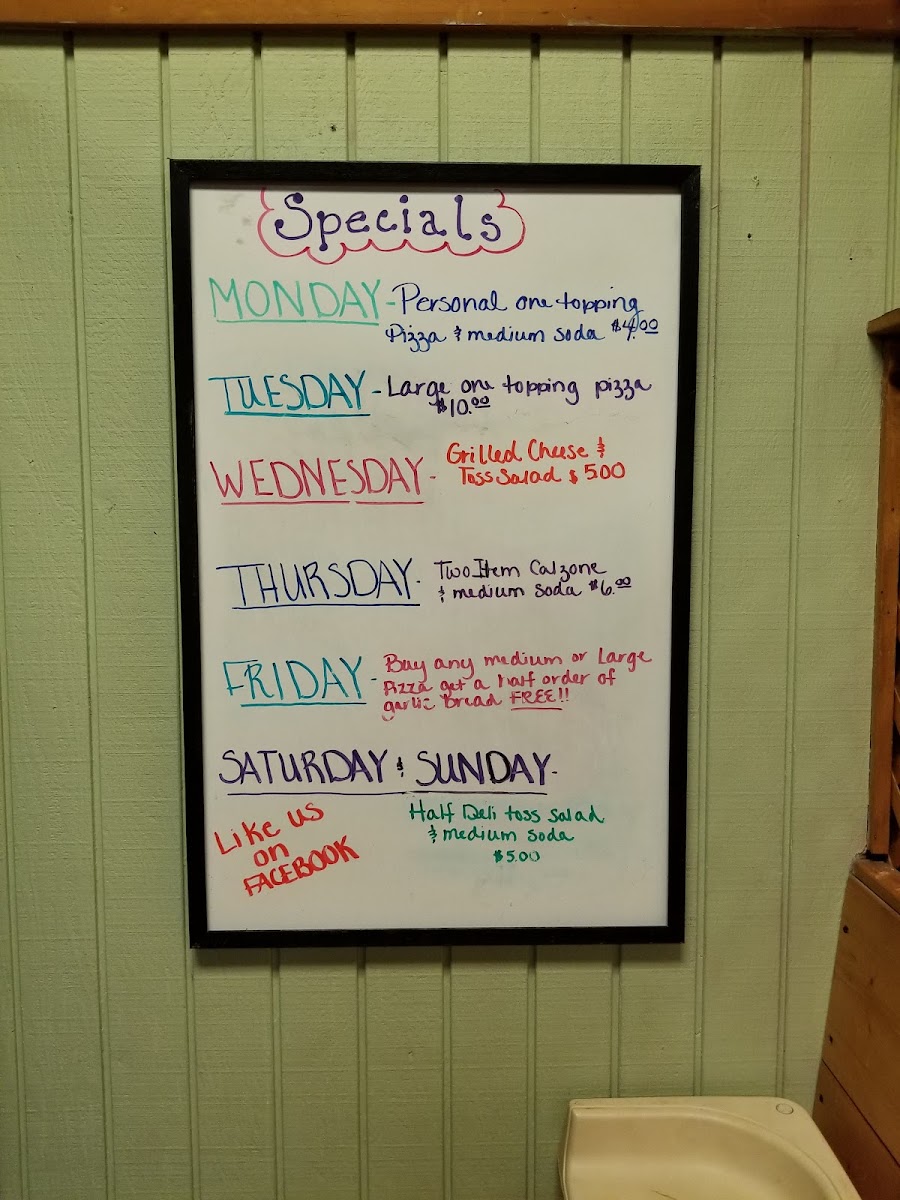 Specials
MONDAY - Personal one topping
Pizza & medium soda $4.00
TUESDAY - Large one topping pizza
$10.00
WEDNESDAY - Grilled Cheese &
Toss Salad $5.00
THURSDAY - Two Item Calzone
& medium soda $6.00
FRIDAY - Buy any medium or Large
Pizza get a half order of
garlic Bread FREE!!
SATURDAY & SUNDAY -
Half Deli toss salad
& medium soda
$5.00
Like us
on
FACEBOOK